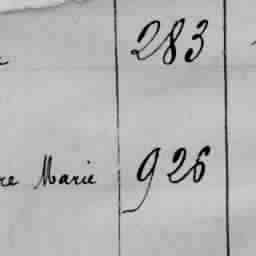 283
re Marie 926